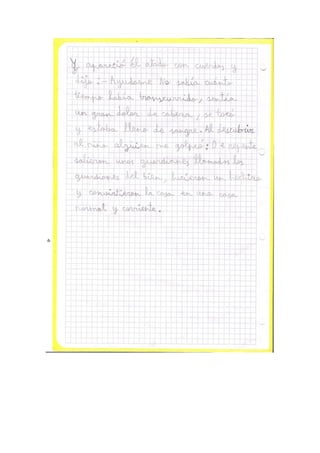 Y apareció él atado con cuerdas y
dijo :- Ayudarme No sabía cuánto
tiempo había transcurrido, sentía
un gran dolor de cabeza, se tocó
y estaba lleno de sangre. Al descubrir
al niño alguien me golpeó: D e repente
salieron unos guardianes llamados los
guardianes del bien, hicieron un hechizo
y convirtieron la casa en una casa
normal y corriente.